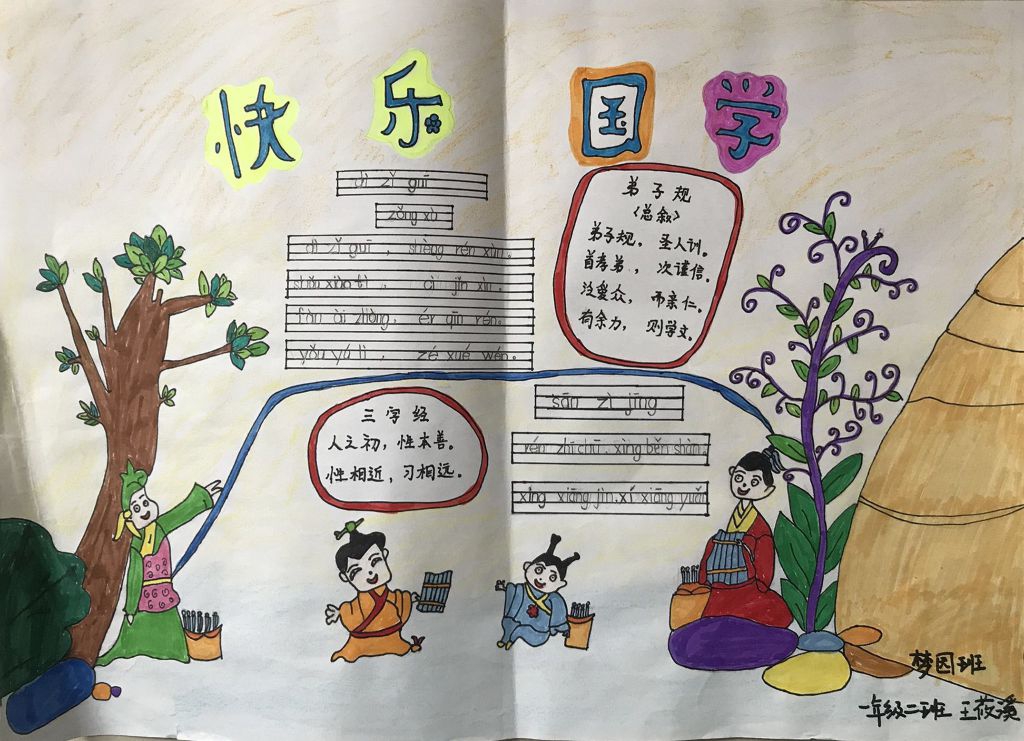 快乐国学
dì zǐ guī
zǒng xù
dì zǐ guī , shèng rén xùn。
shǒu xiào tì , cì jǐn xìn。
fàn ài zhòng, ér qīn rén。
yǒu yú lì , zé xué wén。
弟子规
〈总叙〉
弟子规，圣人训。
首孝弟，次谨信。
泛爱众，而亲仁。
有余力，则学文。
三字经
人之初，性本善。
性相近，习相远。
sān zì jīng
rén zhī chū, xìng běn shàn。
xìng xiāng jìn, xí xiāng yuǎn
梦园班
一年级二班 王莜溪